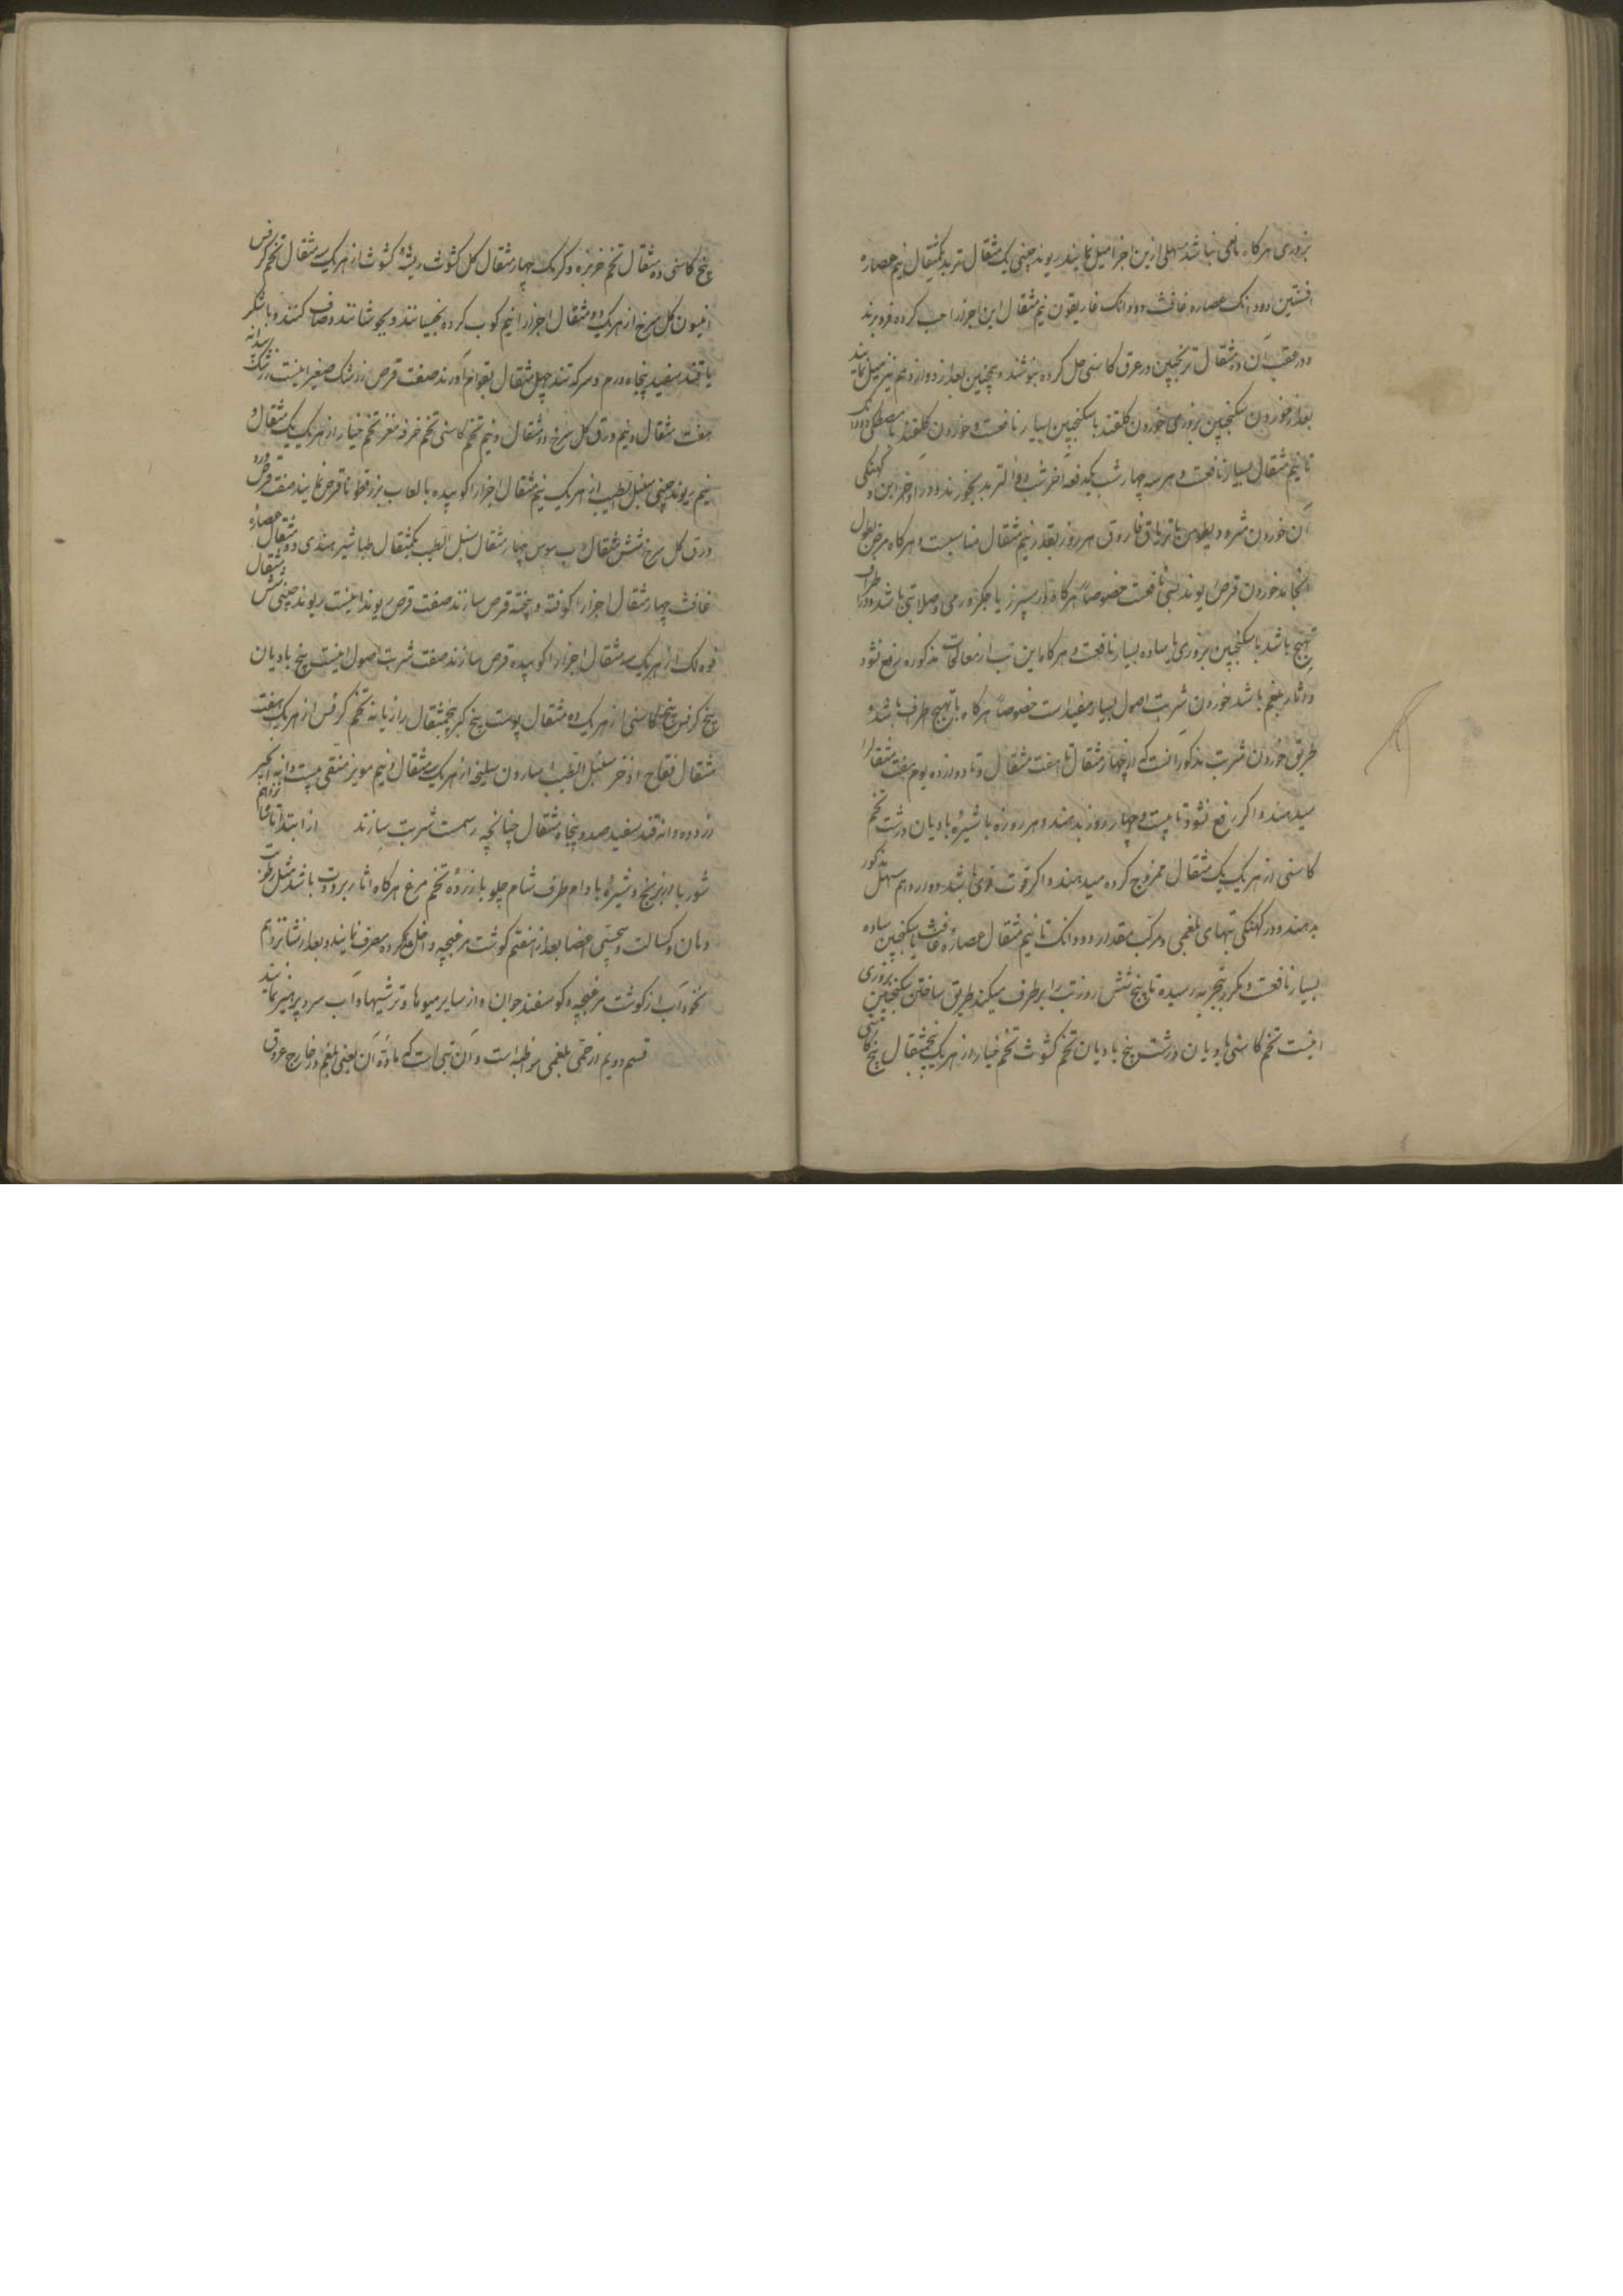 بزوری هرکاه مانعی نباشد مسهلی ازین اجزا میل نمایند ریوند چینی یک مثقال تربد یکمثقال نیم عصاره
افسنتین دودانک عصاره غافث دودانک غاریقون نیم مثقال این اجزا را حب کرده فروبرند
و در عقب آن ده مثقال ترنجبین در عرق کاسنی حل کرده بنوشند و همچنین بعد از دوازدهم نیز میل نمایند
بعد از خوردن سکنجبین بزوری خوردن کلقند با سکنجبین بسیار نافعست و خوردن کلقند با مصطکی دودانک
تا نیم مثقال بسیار نافعست و هر سه چهار شب یکدفعه آخر شب دواء التربد بخورند و در اواخر این و کهنکی
آن خوردن مثرودیطوس یا تریاق فاروق هر روز بقدر نیم مثقال مناسبست و هرکاه مرض بطول
انجامد خوردن قرص ریوند بسی نافعست خصوصاً هرکاه در سپرز یا جکر ورمی و صلابتی باشد و در اطراف
تهیج باشد با سکنجبین بزوری یا ساده بسیار نافعست و هرکاه این تب از معالجات مذکوره رفع نشود
و آثار بلغم باشد خوردن شربت اصول بسیار مفید است خصوصاً هرکاه با تهیج اطراف باشد و
طریق خوردن شربت مذکور آنست که از چهار مثقال تا هفت مثقال و تا دوازده یوم هفت مثقال را
میدهند و اکر رفع نشود تا بیست و چهار روز بدهند و هر روزه با شیرهٔ بادیان درشت تخم
کاسنی از هر یک یک مثقال ممزوج کرده میدهند و اکر قوت قوی باشد دوازدهم مسهل مذکور
بدهند و در کهنکی تبهای بلغمی و مرکب مقدار دودانک تا نیم مثقال عصارهٔ غافث با سکنجبین ساده
بسیار نافعست و مکرر بتجربه رسیده تا پنج شش روز تب را برطرف میکند طریق ساختن سکنجبین بزوری
اینست تخم کاسنی بادیان درشت بیخ بادیان تخم کشوث تخم خیار از هر یک پنجمثقال بیخ کاسنی
بیخ کاسنی ده مثقال تخم خربزه و کرمک چهار مثقال کل کشوث ریشهٔ کشوث از هر یک سه مثقال تخم کرفس
انیسون کل سرخ از هر یک دو مثقال اجزا را نیم کوب کرده بخیسانند و بجوشانند و صاف کنند و با شکر
یا قند سفید پنجاه درم و سرکه تند چهل مثقال بقوام آورند صفت قرص زرشک صغیر اینست زرشک بیدانه
هفت مثقال و نیم ورق کل سرخ دو مثقال و نیم تخم کاسنی تخم خرفه مغز تخم خیار از هر یک یک مثقال و
نیم ریوند چینی سنبل الطیب از هر یک نیم مثقال اجزا را کوبیده با لعاب بزرقطونا قرص نمایند صفت قرص ورد
ورق کل سرخ شش مثقال رب سوس چهار مثقال سنبل الطیب یکمثقال طباشیر هندی دو مثقال عصارهٔ
غافث چهار مثقال اجزا را کوفته و بیخته قرص سازند صفت قرص ریوند اینست ریوند چینی شش مثقال
فوه لک از هر یک سه مثقال اجزا را کوبیده قرص سازند صفت شربت اصول اینست بیخ بادیان
بیخ کرفس بیخ کاسنی از هر یک ده مثقال پوست بیخ کبر پنجمثقال رازیانه تخم کرفس از هر یک هفت
مثقال فقاح اذخر سنبل الطیب اسارون سلیخه از هر یک سه مثقال و نیم مویز منقی بیست دانه انجیر
زرد ده دانه قند سفید صد و پنجاه مثقال چنانچه رسمست شربت سازند از ابتدا تا شانزدهم
شوربا از برنج و شیرهٔ بادام طرف شام چلو با زردهٔ تخم مرغ هرکاه اثار برودت باشد مثل رطوبت
دهان و کسالت و سستی اعضا بعد از هفتم کوشت مرغبچه داخل کرده صرف نمایند و بعد از شانزدهم
نخودآب از کوشت مرغبچه و کوسفند جوان و از سایر میوها و ترشیها و آب سرد پرهیز نمایند
قسم دویم از حمی بلغمی مواظبه است و آن تبی است که مادهٔ آن یعنی بلغم در خارج عروق